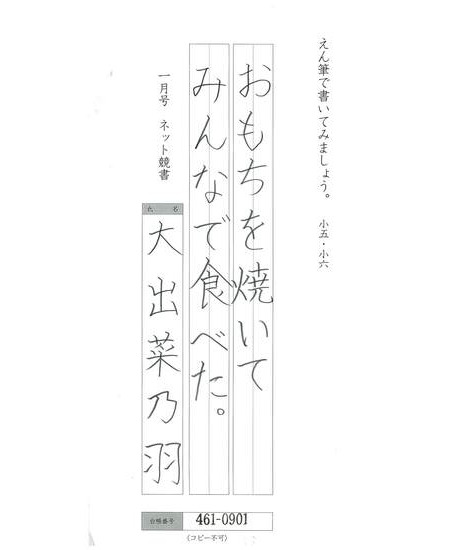 えん筆で書いてみましょう。 小五・小六
おもちを焼いて
みんなで食べた。
一月号 ネット競書
氏名
大出菜乃羽
台帳番号 461-0901
(コピー不可)